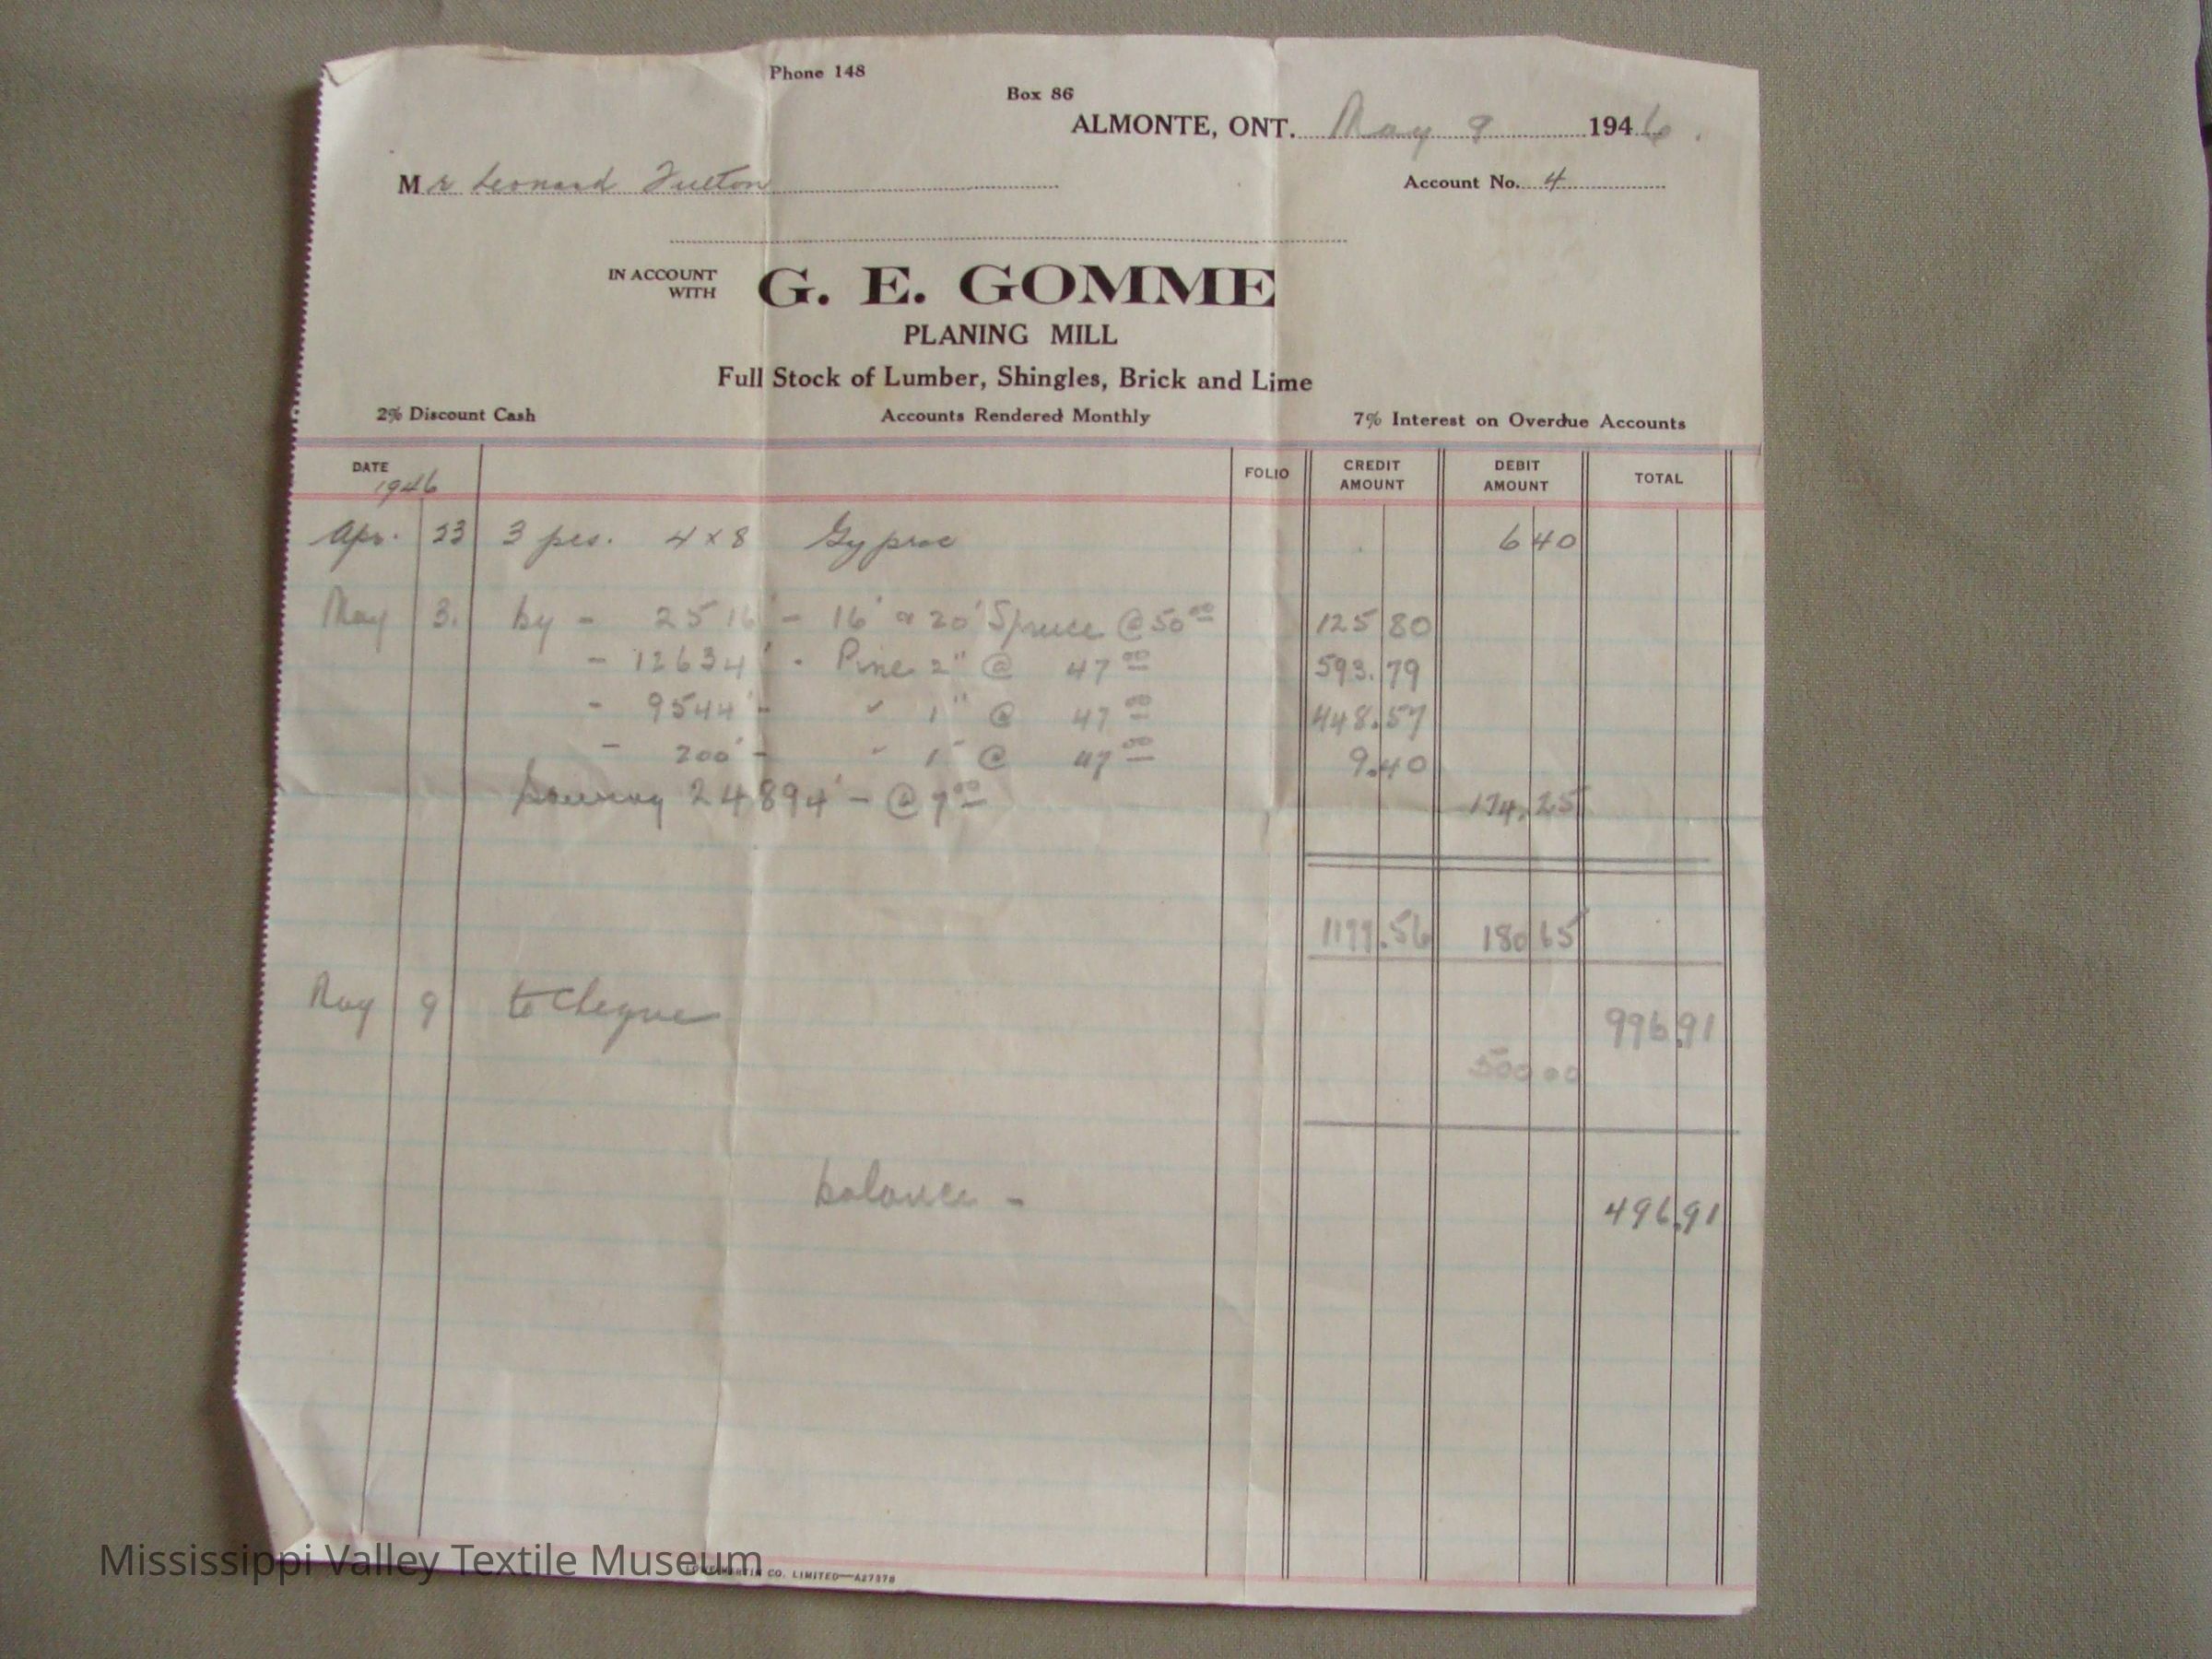 Phone 148
Box 86
ALMONTE, ONT. May 9 1946.
Mr Leonard Fulton
Account No. 4
IN ACCOUNT WITH G. E. GOMME
PLANING MILL
Full Stock of Lumber, Shingles, Brick and Lime
2% Discount Cash Accounts Rendered Monthly 7% Interest on Overdue Accounts
DATE FOLIO CREDIT AMOUNT DEBIT AMOUNT TOTAL
1946
Apr. 23 3 pcs. 4 x 8 Gyproc 6 40
May 3. by - 2516' - 16' a 20' Spruce @ 50 00 125 80
- 12634' - Pine 2" @ 47 00 593.79
- 9544' - " 1" @ 47 00 448.57
- 200' - " 1" @ 47 00 9.40
24894' - @ 7 00 174.25
180 65
May 9 to Cheque
996.91
500 00
balance - 496.91
CO. LIMITED—A27378
Mississippi Valley Textile Museum